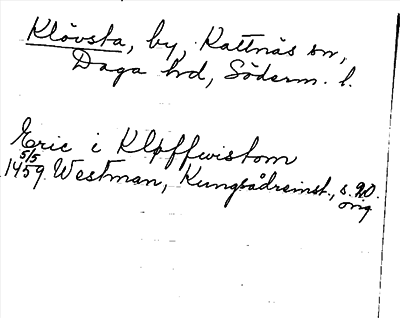 Klövsta, by, Kattnäs sn,
Daga hd, Söderm. l.
Eric i Kløffwistom
5/5
1459 Westman, Kungsådreinst., s. 90.
orig